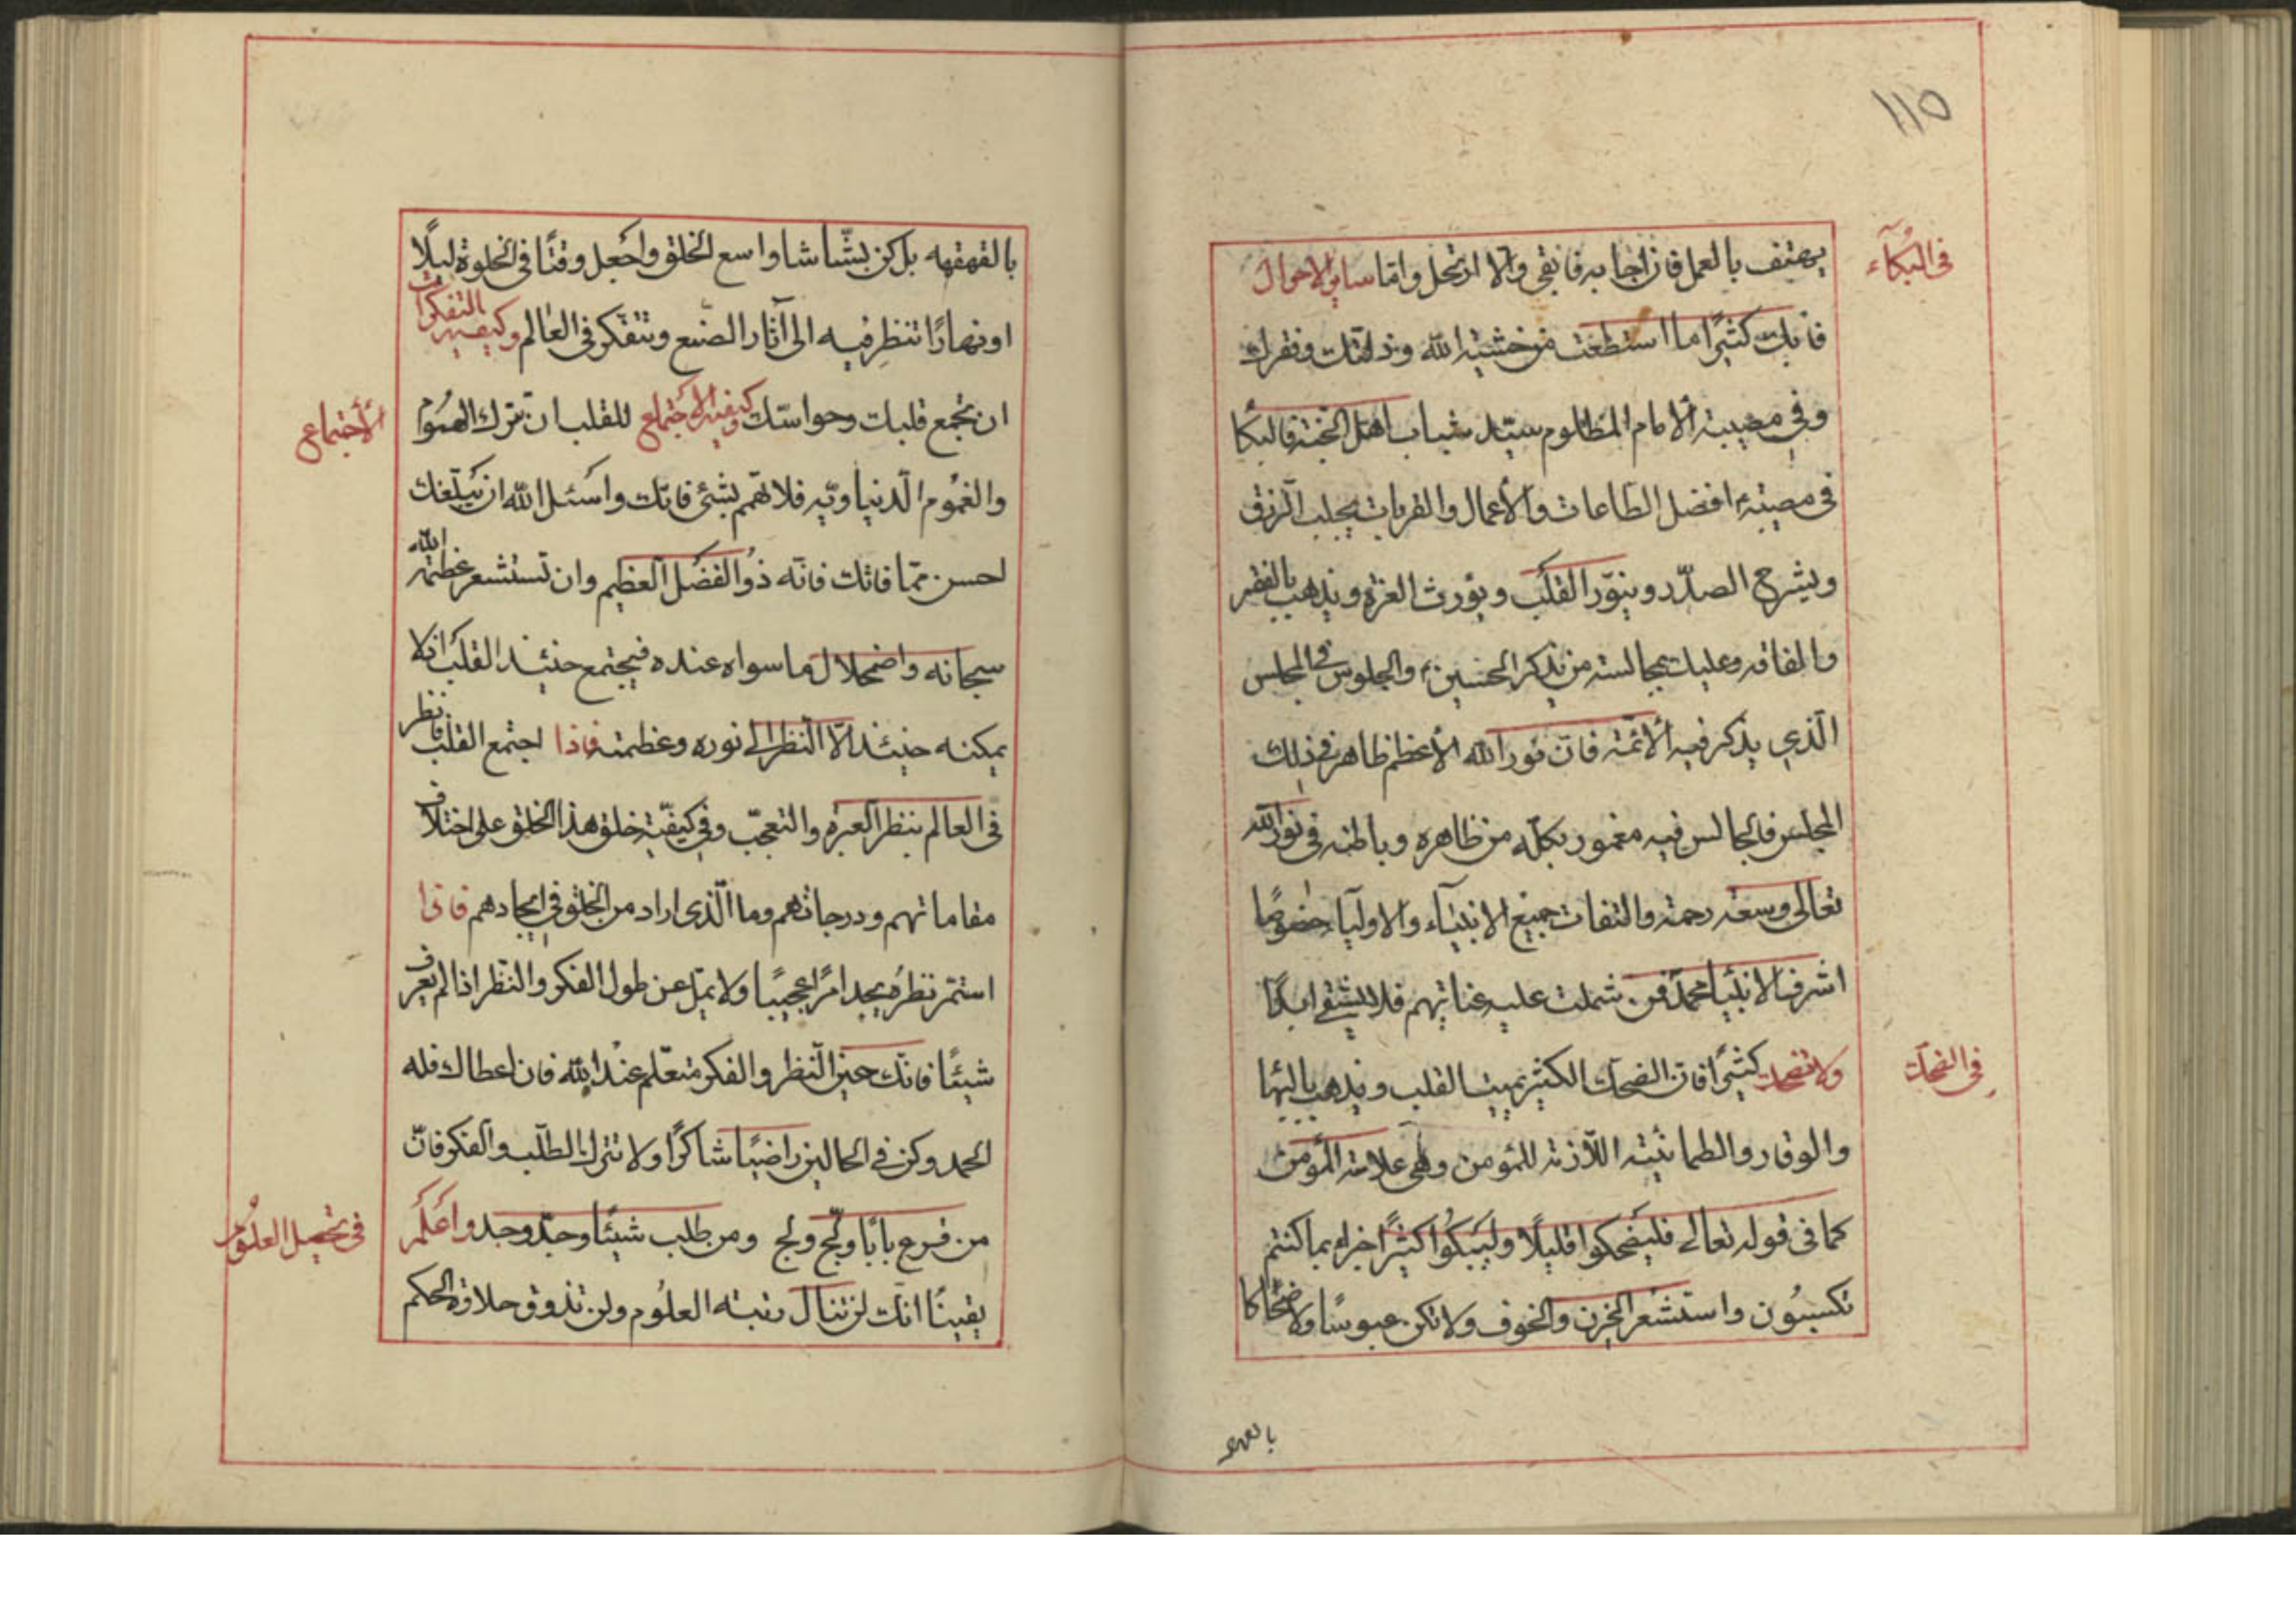 ١١٥
فى البكآء
يهتف بالعمل فان اجابه فابقى والا ارتحل واما ساير الاحوال
فابك كثيرًا ما استطعت من خشية الله وذلتك وفقرك
وفي مصيبة الامام المظلوم سيد شباب اهل الجنة فالبكا
فى مصيبته افضل الطاعات والأعمال والقربات يجلب الرزق
ويشرح الصدر وينوّر القلب ويورث العزة ويذهب بالفقر
والفاقه وعليك بمجالسته من يذكر الحسين والجلوس في المجلس
الّذي يذكر فيه الائمّة فانّ نور الله الأعظم ظاهر في ذلك
المجلس فالجالس فيه مغمور بكلّه من ظاهره وباطنه في نور الله
تعالى وسعة رحمته والتفات جميع الانبيآء والاوليآء خصوصًا
اشرف الانبيآ محمد فمن شملت عليه عناياتهم فلا يشقى ابدًا
فى الضحك
ولا تضحك كثيرًا فان الضحك الكثير يميت القلب ويذهب بالبهآ
والوقار والطمانينة اللّازمة للمؤمن وهي علامة المؤمن
كما فى قوله تعالى فليضحكوا قليلًا وليبكوا كثيرًا جزاء بما كنتم
تكسبون واستشعر الحزن والخوف ولا تكن عبوسًا ولا ضحّاكا
بالقهقهه
بالقهقهه بل كن بشّاشا واسع الخلق واجعل وقتًا فى الخلوة ليلًا
او نهارًا تنظر فيه الى آثار الصنع وتتفكر فى العالم وكيفية التفكرات
ان تجمع قلبك وحواسّك وكيفية الاجتماع للقلب ان تترك الهموم
الأجتماع
والغموم الّدنياويّه فلا تهتم بشئ فاتك واسئل الله ان يبلّغك
احسن ممّا فاتك فانه ذو الفضل العظيم وان تستشعر عظمة الله
سبحانه واضمحلال ما سواه عنده فيجتمع حينئذ القلب اذ لا
يمكنه حينئذ الّا النظر الى نوره وعظمته فاذا اجتمع القلب فانظر
فى العالم بنظر العبرة والتعجّب وفي كيفيّة خلق هذا الخلق على اختلاف
مقاماتهم ودرجاتهم وما الّذى اراد من الخلق في ايجادهم فاذا
استمر نظره يجد امرًا عجيبًا ولا يمّل عن طول الفكر والنظر اذا لم يعرف
شيئًا فانّك حين النظر والفكر متعلّم عند الله فان اعطاك فله
الحمد وكن في الحالين راضيًا شاكرًا ولا تترك الطلب والفكر فانّ
من قرع بابًا ولجّ ولج ومن طلب شيئًا وجدّ وجد واعلم
فى تحصيل العلوم
يقينًا انّك لن تنال رتبة العلوم ولن تذوق حلاوة الحكم